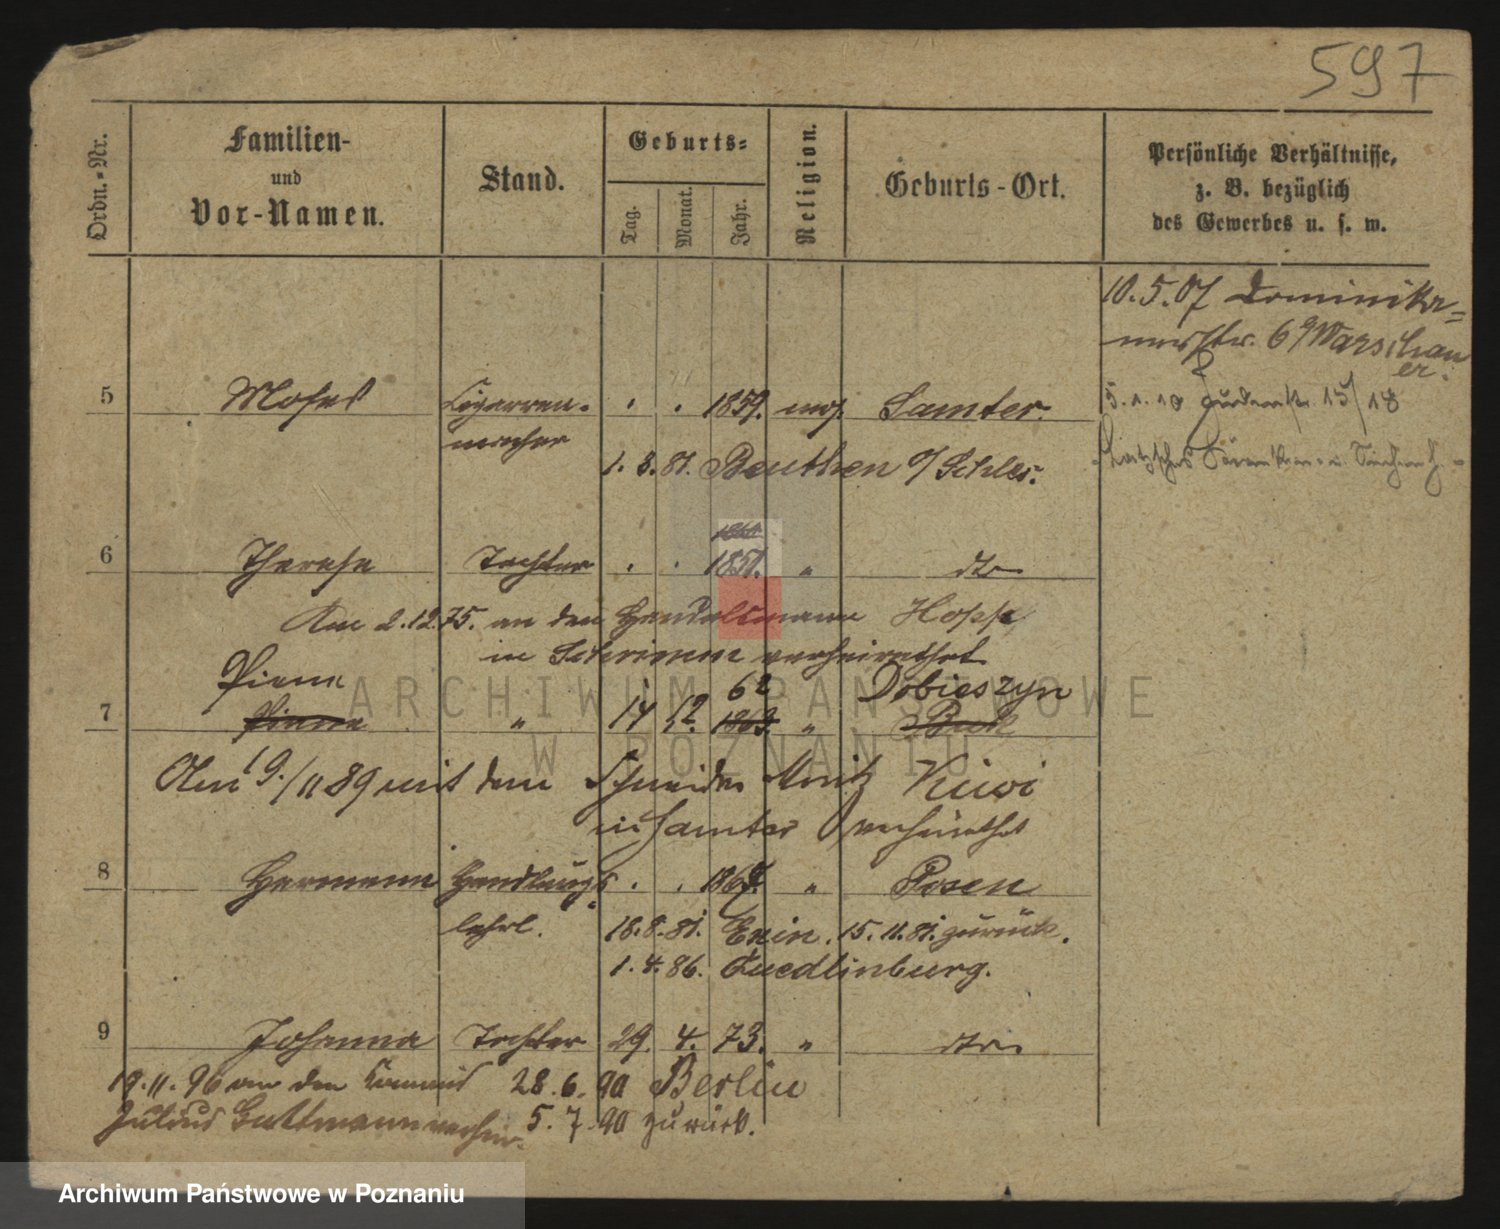 597
Ordn.-Nr.
Familien-
und
Vor-Namen.
Stand.
Geburts-
Tag.
Monat.
Jahr.
Religion.
Geburts-Ort.
Persönliche Verhältnisse,
z. B. bezüglich
des Gewerbes u. s. w.
10.5.07 Dominika-
nerstr. 6 Warschau
er.
5 Moses Cigarren- 1859. mos. Samter.
macher
5.1.10 Judenstr. 15/18
1.3.81. Beuthen O/Schles.
1860
6 Therese Tochter 1851. " dto
Am 2.12.75. an den Handelsmann Hoppe
in Schrimm verheirathet
62 Dobieszyn
7 " 14 12. 1863. " Buk
Am 19./11 89 mit dem Schneider Moritz Kiwi
in Samter verheirathet
8 Hermann Handlungs- 1867. " Posen
lehrl. 18.8.81. Exin. 15.11.81. zurück.
1.4.86. Quedlinburg.
9 Johanna Tochter 29. 4. 73. " dto.
19.11.96 an den Commis 28.6.90 Berlin
Julius Guttmann verheir. 5.7.90 zurück.
ARCHIWUM PAŃSTWOWE
W POZNANIU
Archiwum Państwowe w Poznaniu